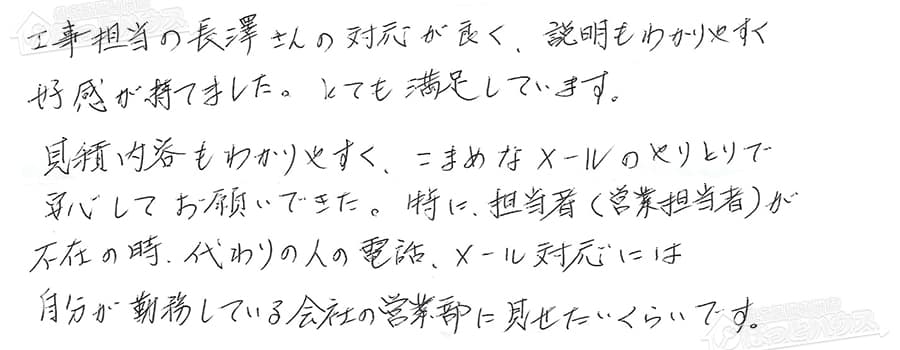 工事担当の長澤さんの対応が良く、説明もわかりやすく
好感が持てました。とても満足しています。
見積内容もわかりやすく、こまめなメールのやりとりで
安心してお願いできた。特に、担当者(営業担当者)が
不在の時、代わりの人の電話、メール対応には
自分が勤務している会社の営業部に見せたいくらいです。